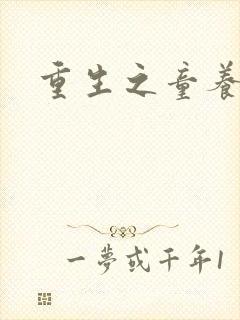 重生之童養
一夢或千年1